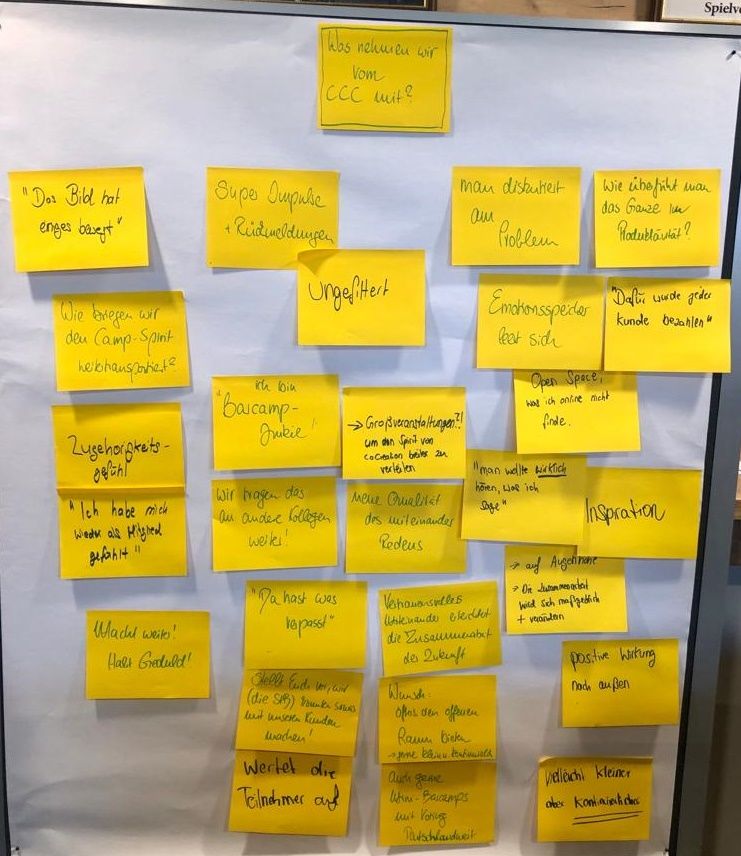 Spielve
Was nehmen wir
vom
CCC mit?
"Das Bild hat
einiges bewegt"
Super Impulse
+ Rückmeldungen
man diskutiert
am
Problem
Wie überführt man
das Ganze in
Produktivität?
Ungefiltert
Wie kriegen wir
den Camp-Spirit
Emotionsspeicher
leert sich
"Dafür würde jeder
Kunde bezahlen"
"ich bin
Barcamp-
Junkie!"
→ Großveranstaltungen?!
um den Spirit von
CoCreation breiter zu
verteilen
Open Space,
was ich online nicht
finde.
Zugehörigkeits-
gefühl
"Ich habe mich
wieder als Mitglied
gefühlt"
Wir tragen das
an andere Kollegen
weiter!
neue Qualität
des miteinander
Redens
"man wollte wirklich
hören, was ich
sage"
Inspiration
→ auf Augenhöhe
→ Die Zusammenarbeit
wird sich maßgeblich
+ verändern
Macht weiter!
Habt Geduld!
"Da hast was
verpasst"
Vertrauensvolles
Miteinander erleichtert
die Zusammenarbeit
der Zukunft
positive Wirkung
nach außen
Stellt Euch vor, wir
(die SPB) könnten sowas
mit unseren Kunden
machen!
Wunsch:
öfters den offenen
Raum bieten
→ gerne kleiner
Wertet die
Teilnehmer auf
Auch gerne
Mini-Barcamps
mit Voting
Deutschlandweit
vielleicht kleiner
aber kontinuierlicher